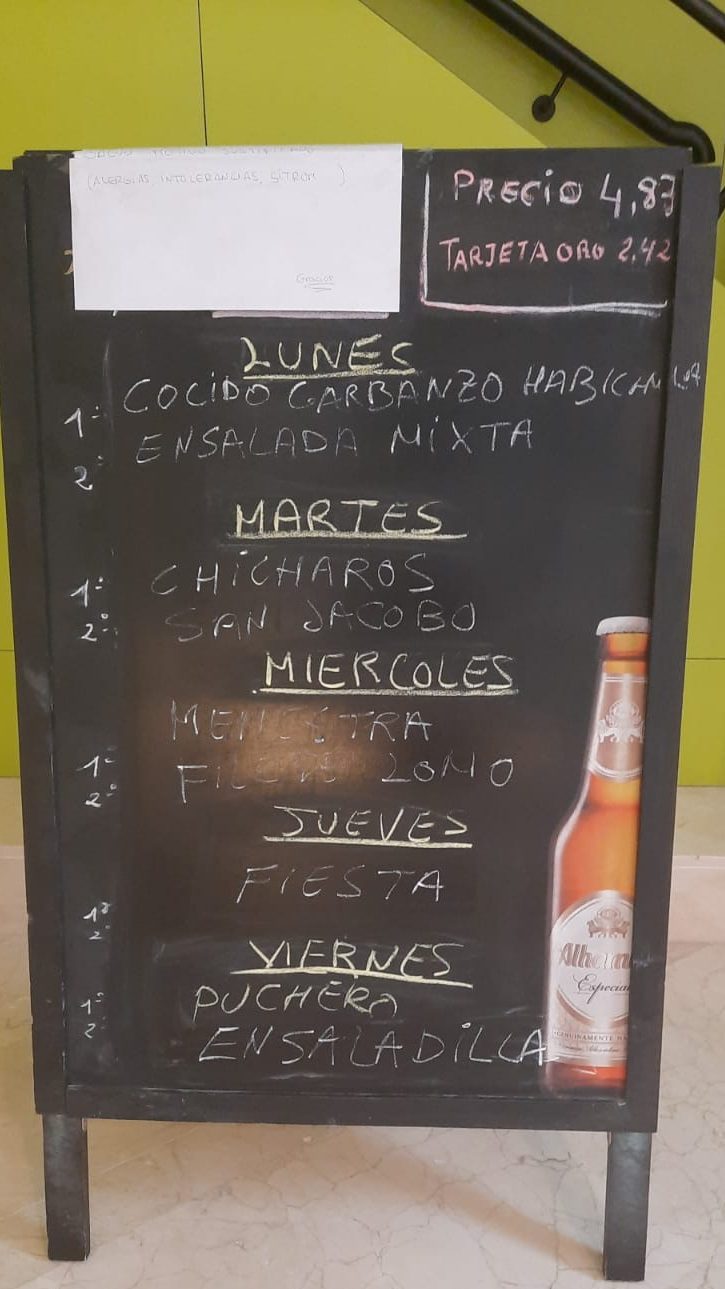 (ALERGIAS INTOLERANCIAS, SITROM )
Gracias
PRECIO 4,83
TARJETA ORO 2,42
LUNES
1º COCIDO GARBANZO
2º ENSALADA MIXTA
MARTES
1º CHICHAROS
2º SAN JACOBO
MIERCOLES
1º MENESTRA
2º LOMO
JUEVES
FIESTA
1º
2º
VIERNES
1º PUCHERO
2º ENSALADILLA
Especial
GENUINAMENTE